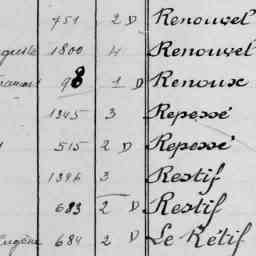 751 2 D Renouvel
1800 4 Renouvel
98 1 D Renoux
1345 3 Repessé
515 2 D Repessé
1396 3 Restif
683 2 D Restif
Eugène 684 2 D Le Rétif